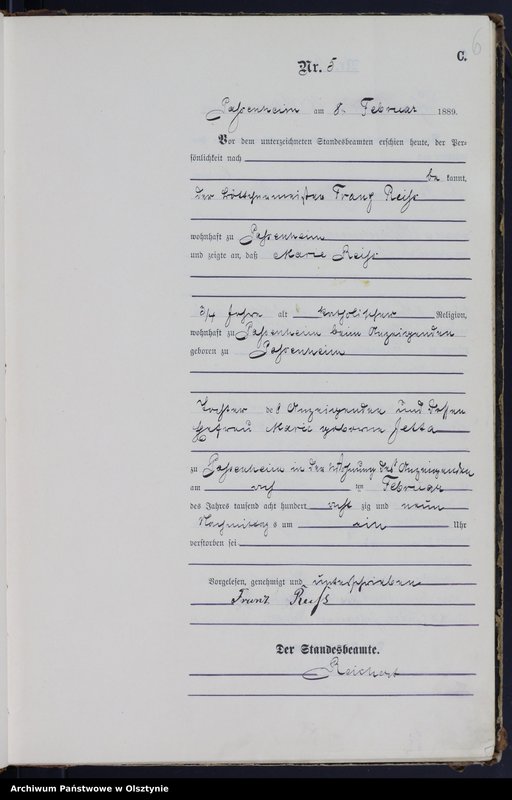 C.
6
Nr. 5
Passenheim am 8. Februar 1889.
Vor dem unterzeichneten Standesbeamten erschien heute, der Per-
sönlichkeit nach
be kannt,
der Böttchermeister Franz Reiss
wohnhaft zu Passenheim
und zeigte an, daß Marie Reiss
3/4 Jahre alt katholischer Religion,
wohnhaft zu Passenheim beim Anzeigenden
geboren zu Passenheim
Tochter des Anzeigenden und dessen
Ehefrau Marie geborene Jetta
zu Passenheim in der Wohnung des Anzeigenden
am acht ten Februar
des Jahres tausend acht hundert acht zig und neun
Nachmittag s um ein Uhr
verstorben sei
Vorgelesen, genehmigt und unterschrieben
Franz Reiss
Der Standesbeamte.
Reichert
Archiwum Państwowe w Olsztynie